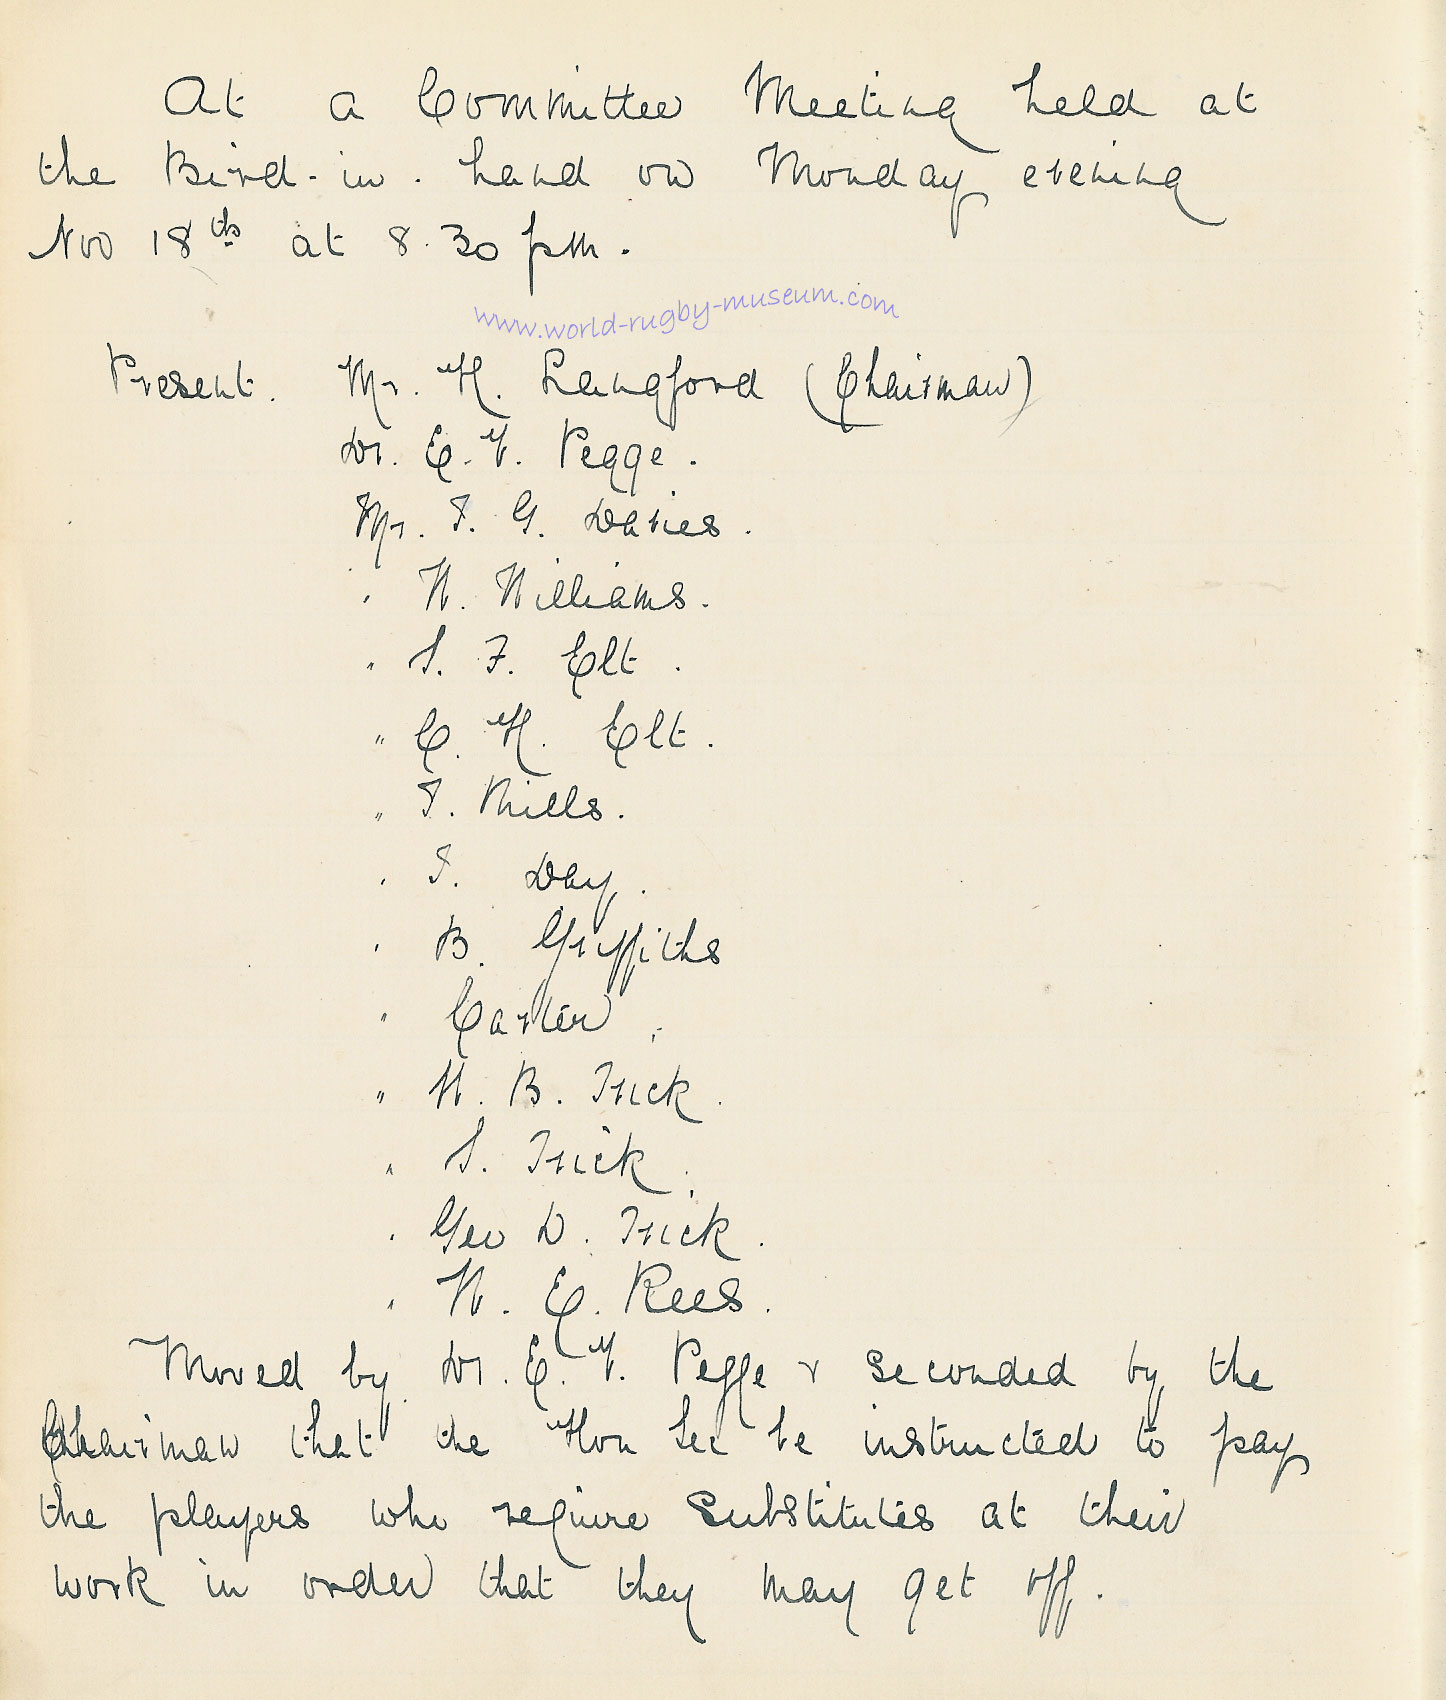 At a Committee Meeting held at
the Bird-in-hand on Monday evening
Nov 18th at 8.30 pm.
www.world-rugby-museum.com
Present. Mr. H. Langford (Chairman)
Dr. E. V. Pegge.
Mr. F. G. Davies.
" W. Williams.
" S. F. Elt.
" C. H. Elt.
" F. Mills.
" F. Day.
" B. Griffiths
" Carter.
" W. B. Trick.
" S. Trick.
" Geo D. Trick.
" W. E. Rees.
Moved by Dr. E. V. Pegge & seconded by the
Chairman that the Hon Sec be instructed to pay
the players who require substitutes at their
work in order that they may get off.